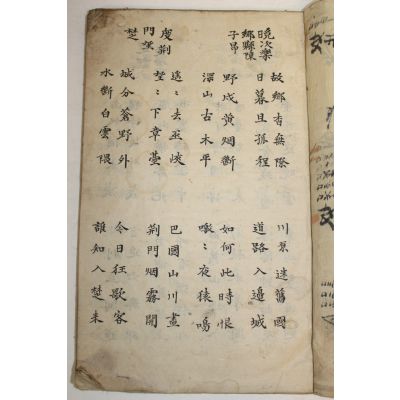 曉次樂
鄉縣陳
子昂
故鄉杳無際
日暮且孤程
川原迷舊國
道路入邊城
野戍黃烟斷
深山古木平
如何此時恨
噭〻夜猿鳴
度荊
門望
楚
遙〻去巫峽
望〻下章臺
巴國山川盡
荊門烟霧開
城分蒼野外
水斷白雲隈
今日狂歌客
誰知入楚來